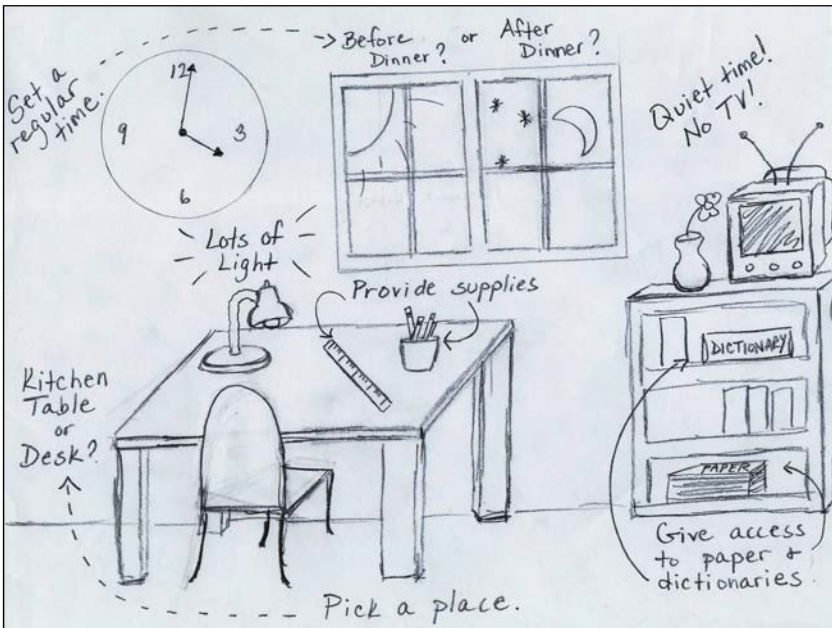 Set a
regular
time.
12
9
3
6
Before
Dinner?
or
After
Dinner?
Quiet time!
No TV!
Lots of
Light
Provide supplies
DICTIONARY
PAPER
Kitchen
Table
or
Desk?
Give access
to paper &
dictionaries
Pick a place.